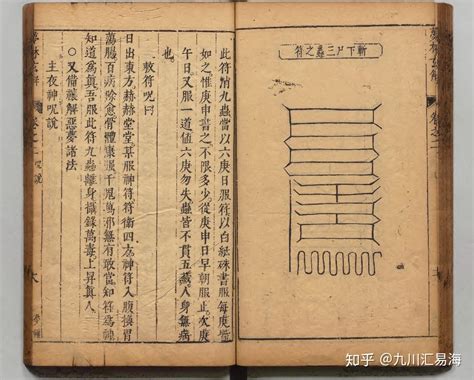 夢林玄解
卷之二
斬下尸三蟲之符
此符消九蟲當以六庚日服符以白紙硃書服每庚
如之惟庚申書之不限多少從庚申日早朝服止次庚
午日又服一道值六庚勿去蟲皆不貫五藏人身無病
也
敕符呪曰
日出東方赫赫堂堂某服神符符衛四方神符入腹換胃
蕩腸百病除愈骨體康強千鬼萬邪無有敢當知符為神
知道為真吾服此符九蟲離身攝錄萬毒上昇真人
〇又備禳解惡夢諸法
主夜神呪說
夢林玄解
知乎 @九川汇易海